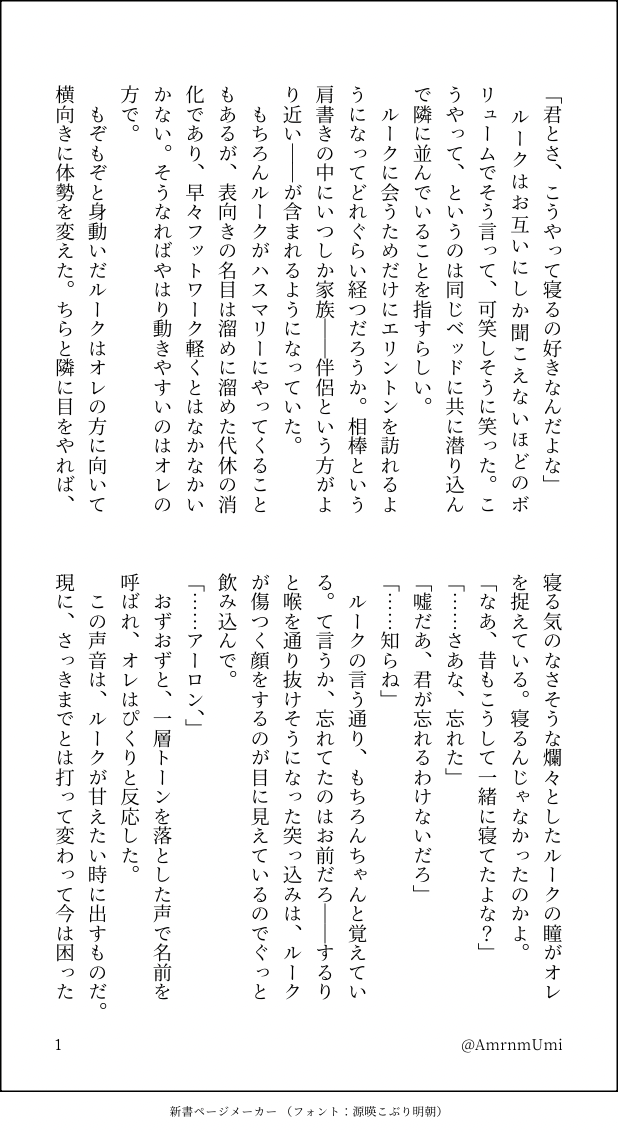 「君とさ、こうやって寝るの好きなんだよな」
　ルークはお互いにしか聞こえないほどのボ
リュームでそう言って、可笑しそうに笑った。こ
うやって、というのは同じベッドに共に潜り込ん
で隣に並んでいることを指すらしい。
　ルークに会うためだけにエリントンを訪れるよ
うになってどれぐらい経つだろうか。相棒という
肩書きの中にいつしか家族――伴侶という方がよ
り近い――が含まれるようになっていた。
　もちろんルークがハスマリーにやってくること
もあるが、表向きの名目は溜めに溜めた代休の消
化であり、早々フットワーク軽くとはなかなかい
かない。そうなればやはり動きやすいのはオレの
方で。
　もぞもぞと身動いだルークはオレの方に向いて
横向きに体勢を変えた。ちらと隣に目をやれば、
寝る気のなさそうな爛々としたルークの瞳がオレ
を捉えている。寝るんじゃなかったのかよ。
「なあ、昔もこうして一緒に寝てたよな？」
「……さあな、忘れた」
「嘘だあ、君が忘れるわけないだろ」
「……知らね」
　ルークの言う通り、もちろんちゃんと覚えてい
る。て言うか、忘れてたのはお前だろ――するり
と喉を通り抜けそうになった突っ込みは、ルーク
が傷つく顔をするのが目に見えているのでぐっと
飲み込んで。
「……アーロン、」
　おずおずと、一層トーンを落とした声で名前を
呼ばれ、オレはぴくりと反応した。
　この声音は、ルークが甘えたい時に出すものだ。
現に、さっきまでとは打って変わって今は困った
1
@AmrnmUmi
新書ページメーカー（フォント：源暎こぶり明朝）